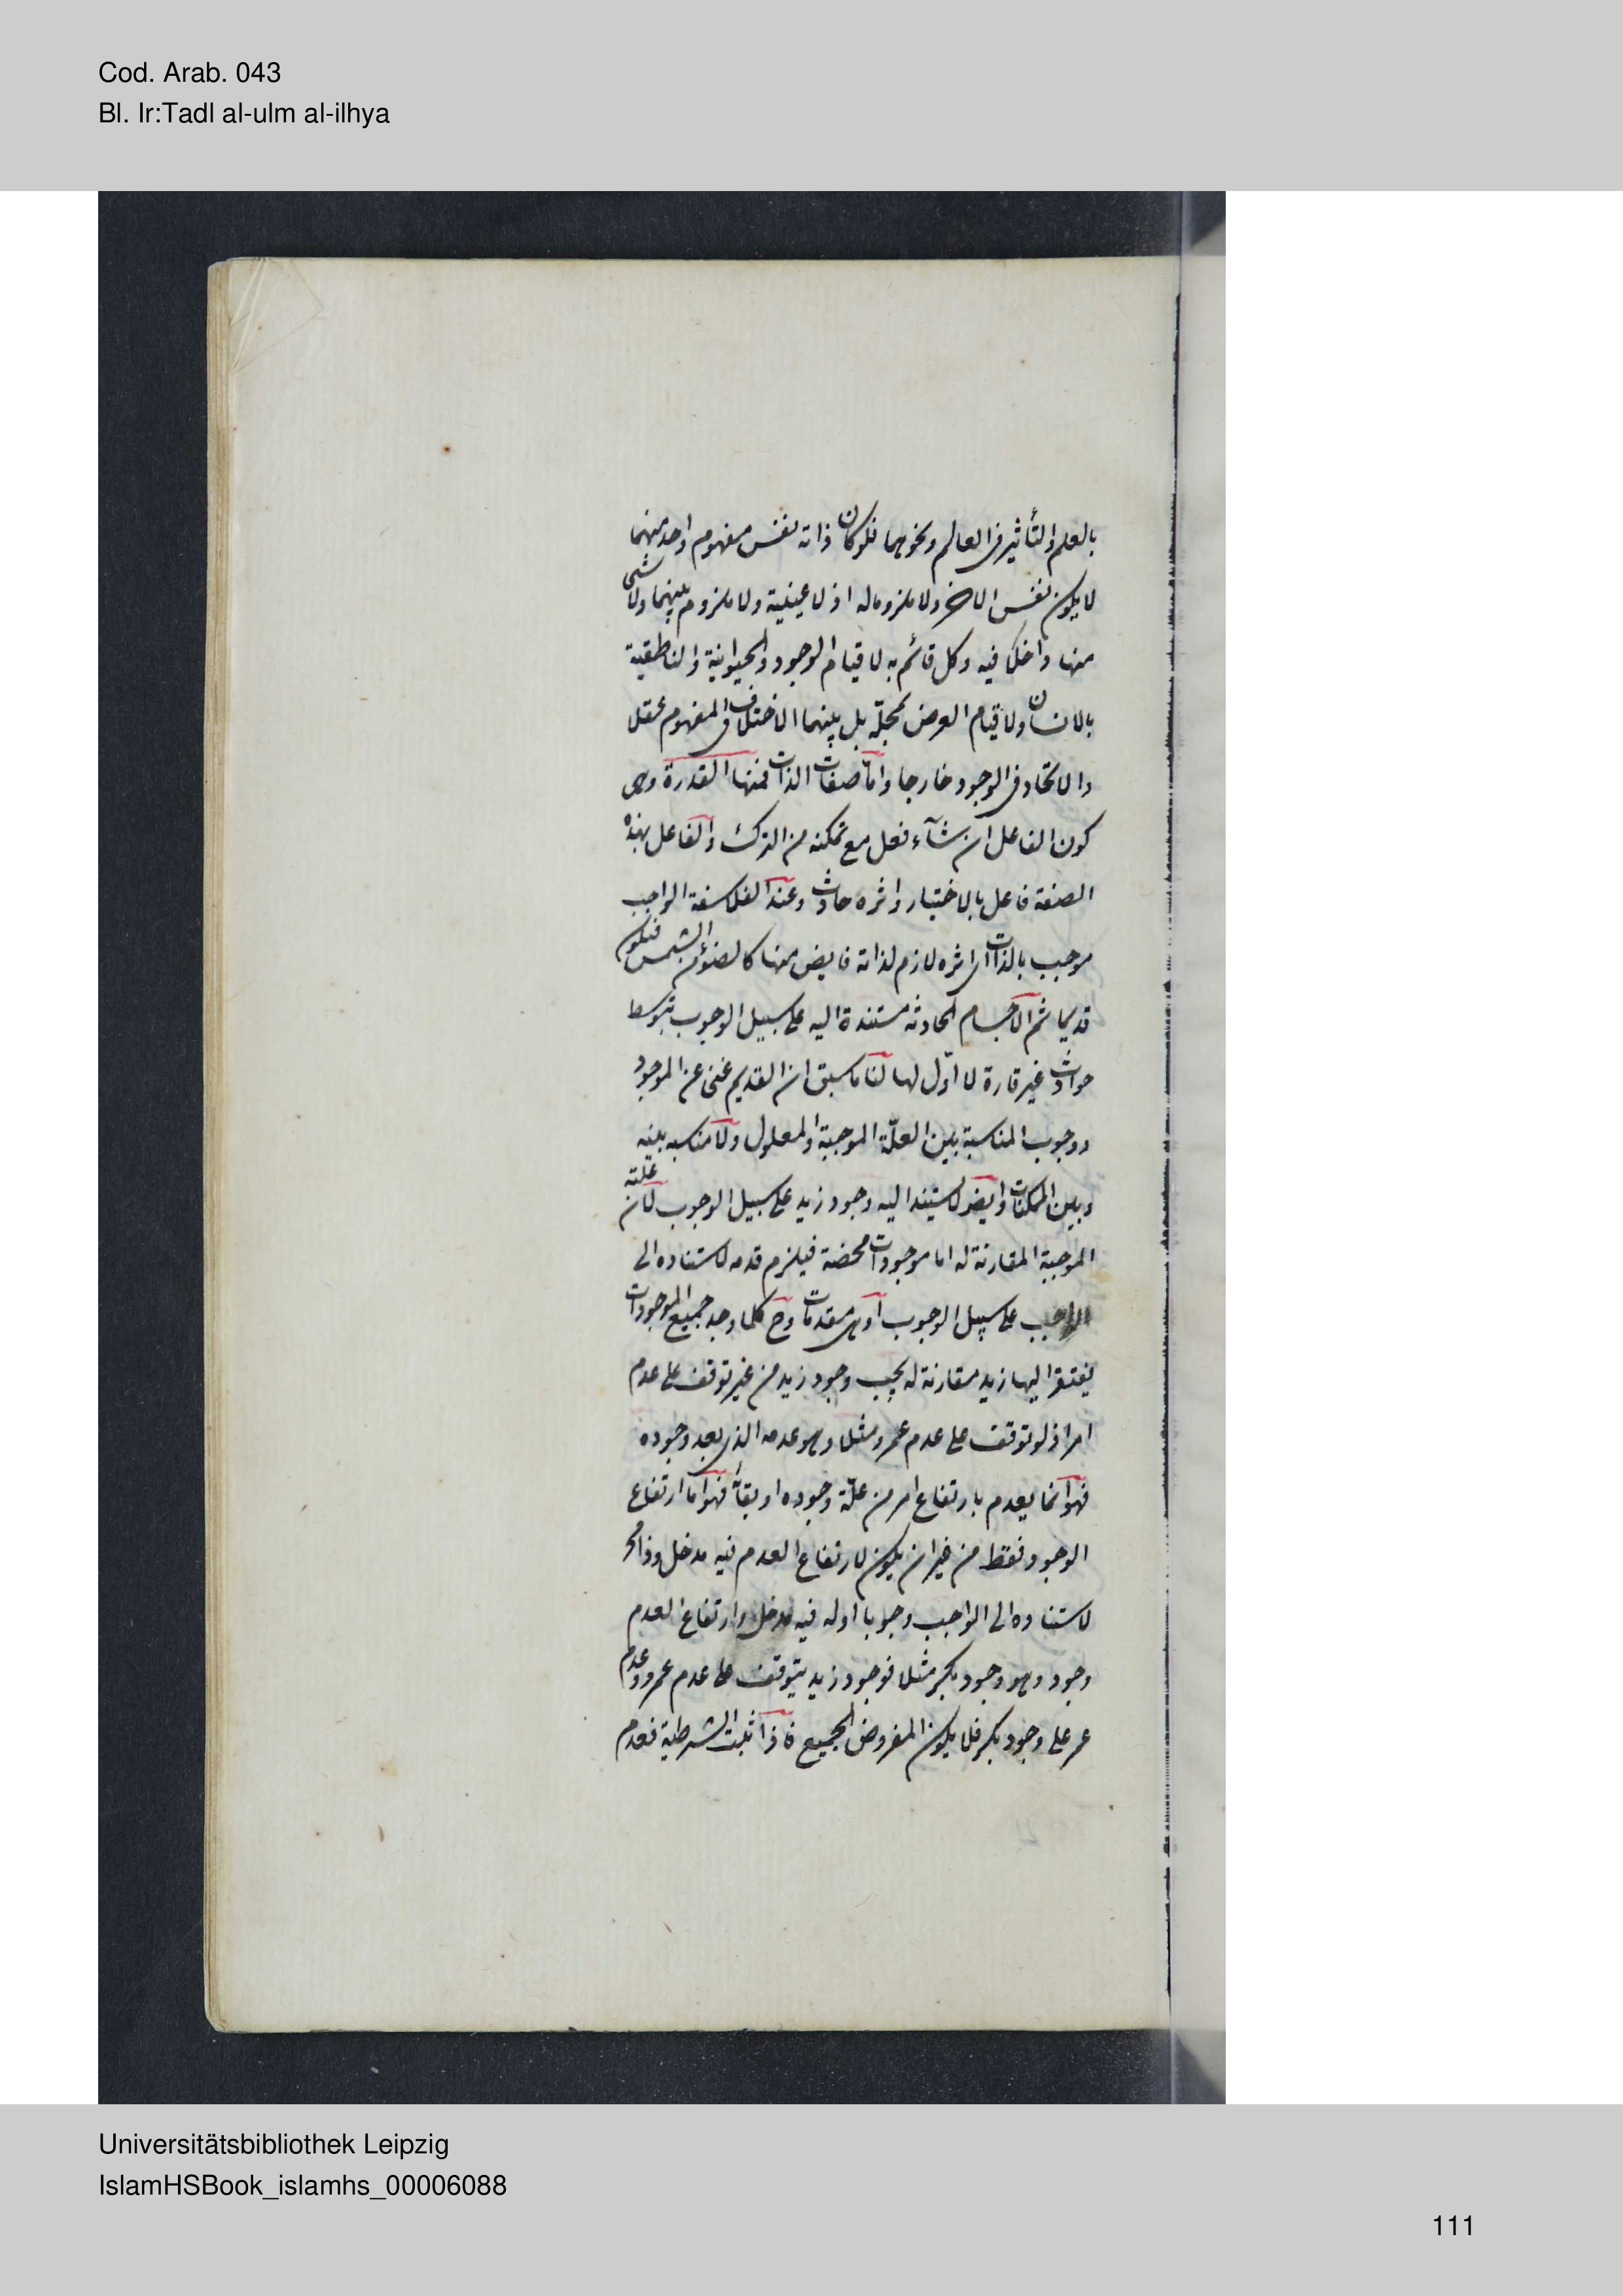 Cod. Arab. 043
Bl. Ir:Tadl al-ulm al-ilhya
بالعلم والتأثير فى العالم ونحوهما فلو كان ذاته نفس مفهوم واحد منهما
لا يكون نفس الاخر ولا ملزوما له اذ لا عينية ولا ملزوم بينهما ولا شى
منها داخلا فيه وكل قائم به لا قيام الوجود والحيوانية والناطقية
بالانسان ولا قيام العرض بمحلّه بل بينهما الاختلاف فى المفهوم عقلا
والاتحاد فى الوجود خارجا واما صفات الذات فمنها القدرة وهى
كون الفاعل ان شآء فعل مع تمكنه من الترك والفاعل بهذه
الصفة فاعل بالاختيار واثره حادث وعند الفلاسفة الواجب
موجب بالذات اى اثره لازم لذاته فايض منها كالضوء من الشمس فيكون
قديما ثم الاجسام الحادثة مستندة اليه على سبيل الوجوب بتوسط
حوادث غير قارة لا اوّل لها لنا ما سبق ان القديم غنى عن الموجود
ووجوب المناسبة بين العلّة الموجبة والمعلول ولا مناسبه بينه
وبين الممكنات وايضا لو استند اليه وجود زيد على سبيل الوجوب لكان علته
الموجبة المقارنة له اما موجودات محضة فيلزم قدمه لاستناده الى
الواجب على سبيل الوجوب او هى مقدمات وح كلما وجد جميع الموجودات
يفتقر اليها زيد مقارنة له يجب وجود زيد من غير توقف على عدم
امر اذ لو توقف على عدم عمرو مثلا وهو عدمه الذى بعد وجوده
فهو انما يعدم بارتفاع امر من علّة وجوده او بقائه فهو اما ارتفاع
الوجود فقط من غير ان يكون لارتفاع العدم فيه مدخل وذا مح
لاستناده الى الواجب وجوبا اوله فيه مدخل وارتفاع العدم
وجود وهو وجود بكر مثلا فوجود زيد يتوقف على عدم عمرو وعدم
عمر على وجود بكر فلا يكون المفروض الجميع فاذا ثبت الشرطية فعدم
Universitätsbibliothek Leipzig
IslamHSBook_islamhs_00006088
111